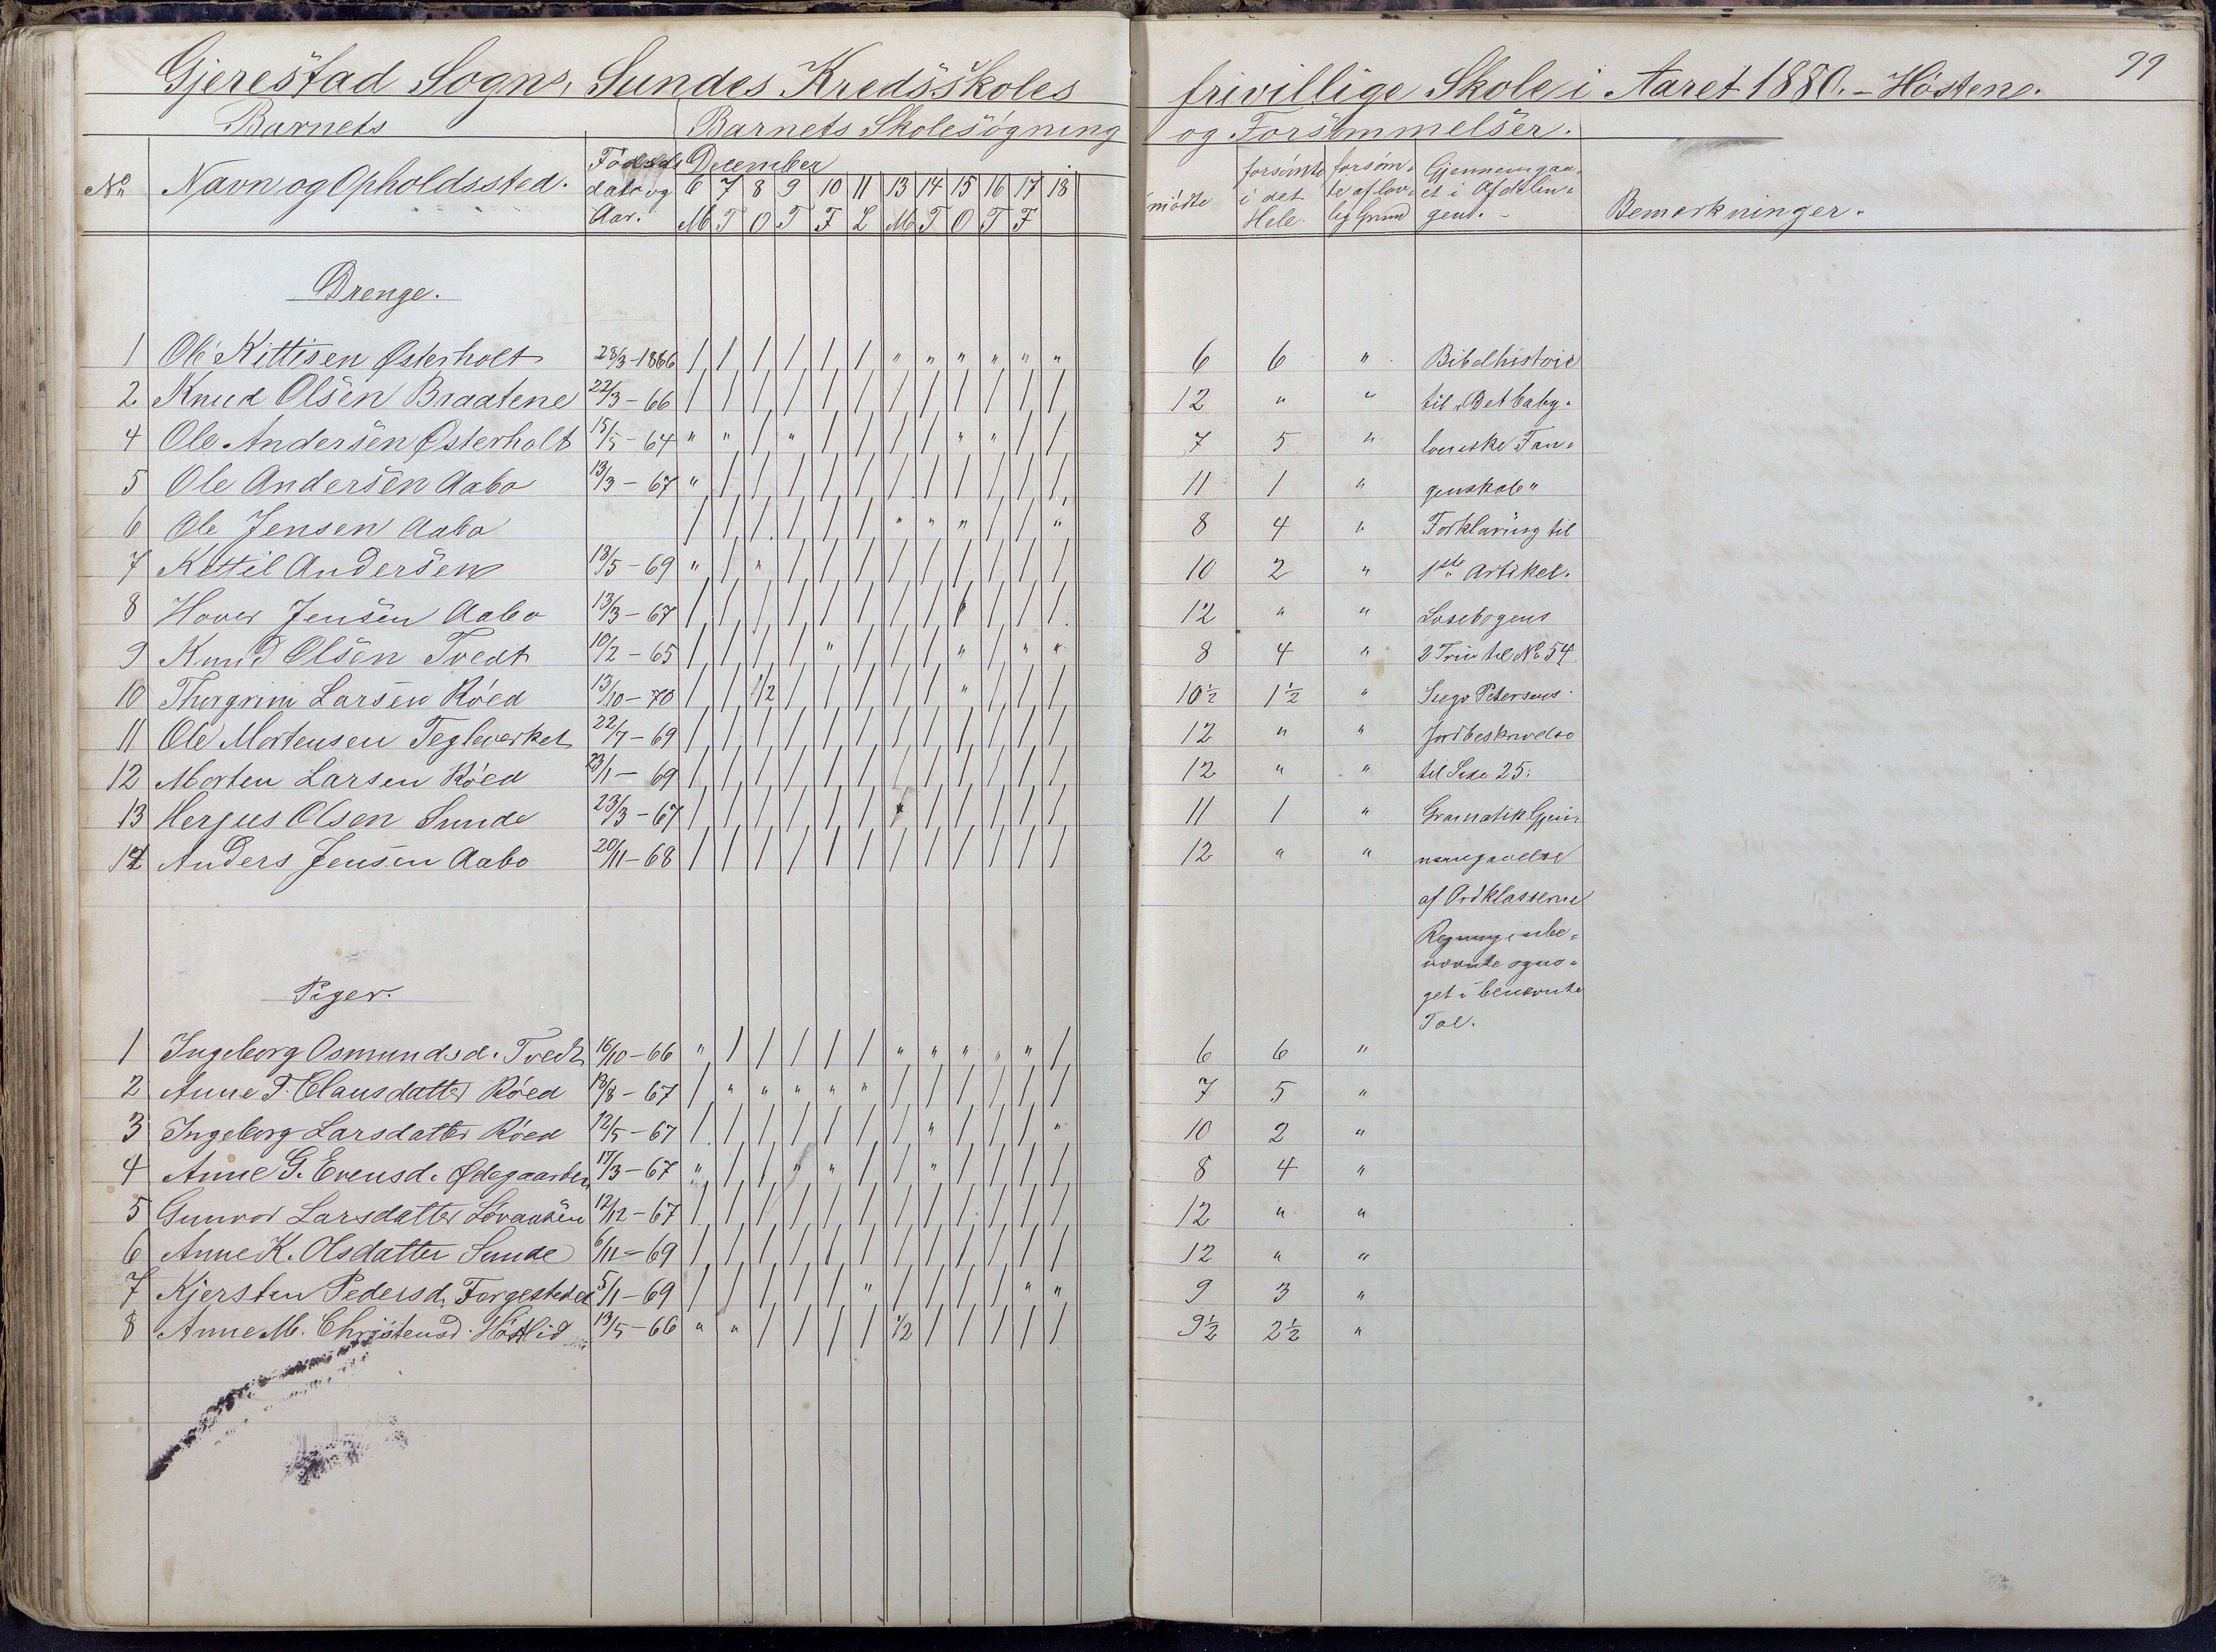 99
Gjerestad Sogns, Sundes Kredsskoles frivillige Skole i Aaret 1880. - Høsten.
Barnets Barnets Skolesøgning og Forsømmelser.
No Navn og Opholdssted. Fødsels dato og Aar. December mødte forsømte i det Hele. forsøm- te af lov- lig Grund Gjennemgaa- et i Afdelin- gen. - Bemerkninger.
6 7 8 9 10 11 13 14 15 16 17 18
M T O T F L M T O T F
Drenge.
1 Ole Kittisen Østerholt 28/3-1866 / / / / / / " " " " " " 6 6 " Bibelhistorie
2. Knud Olsen Braatene 22/3-66 / / / / / / / / / / / / 12 " " til "Det baby-
4 Ole Andersen Østerholt 15/5-64 " " / " / / / / " " / / 7 5 " loniske Fan-
5 Ole Andersen Aabo 13/3-67 " / / / / / / / / / / / 11 1 " genskab"
6 Ole Jensen Aabo / / / / / / " " " / / " 8 4 " Forklaring til
7 Kettil Andersen 18/5-69 " / " / / / / / / / / / 10 2 " 1ste Artikel.
8 Hover Jensen Aabo 13/3-67 / / / / / / / / / / / / 12 " " Læsebogens
9 Knud Olsen Tvedt 10/2-65 / / / / " / / / " / " " 8 4 " 2 Trin til No 54
10 Thorgrim Larsen Röed 13/10-70 / / 1/2 / / / / / " / / / 10½ 1½ " Petersens
11 Ole Mortensen Teglverket 22/7-69 / / / / / / / / / / / / 12 " " Jordbeskrivelse
12 Morten Larsen Röed 23/1-69 / / / / / / / / / / / / 12 " " til Side 25.
13 Herjus Olsen Sunde 23/3-67 / / / / / / / / / / / 11 1 " Gramatik Gjen-
14 Anders Jensen Aabo 20/11-68 / / / / / / / / / / / / 12 " " nemgaaelse
af Ordklasserne
Regning i ube-
nævnte og no-
get i benævnte
Tal.
Piger.
1 Ingeborg Osmundsd. Tvedt 16/10-66 " / / / / / " " " " " / 6 6 "
2 Anne T. Clausdatter Röed 18/8-67 / " " " " " / / / / / / 7 5 "
3 Ingeborg Larsdatter Röed 12/5-67 / / / / / / / " / / / " 10 2 "
4 Anne G. Evensd. Ødegaarden 17/3-67 " / / " " / / " / / / / 8 4 "
5 Gunvor Larsdatter Lövaasen 12/12-67 / / / / / / / / / / / / 12 " "
6 Anne K. Olsdatter Sunde 6/11-69 / / / / / / / / / / / / 12 " "
7 Kjersten Pedersd. 5/1-69 / / / / / " / / / / " " 9 3 "
8 Anne M. Christensd. Höstlid 13/5-66 " " / / / / 1/2 / / / / / 9½ 2½ "